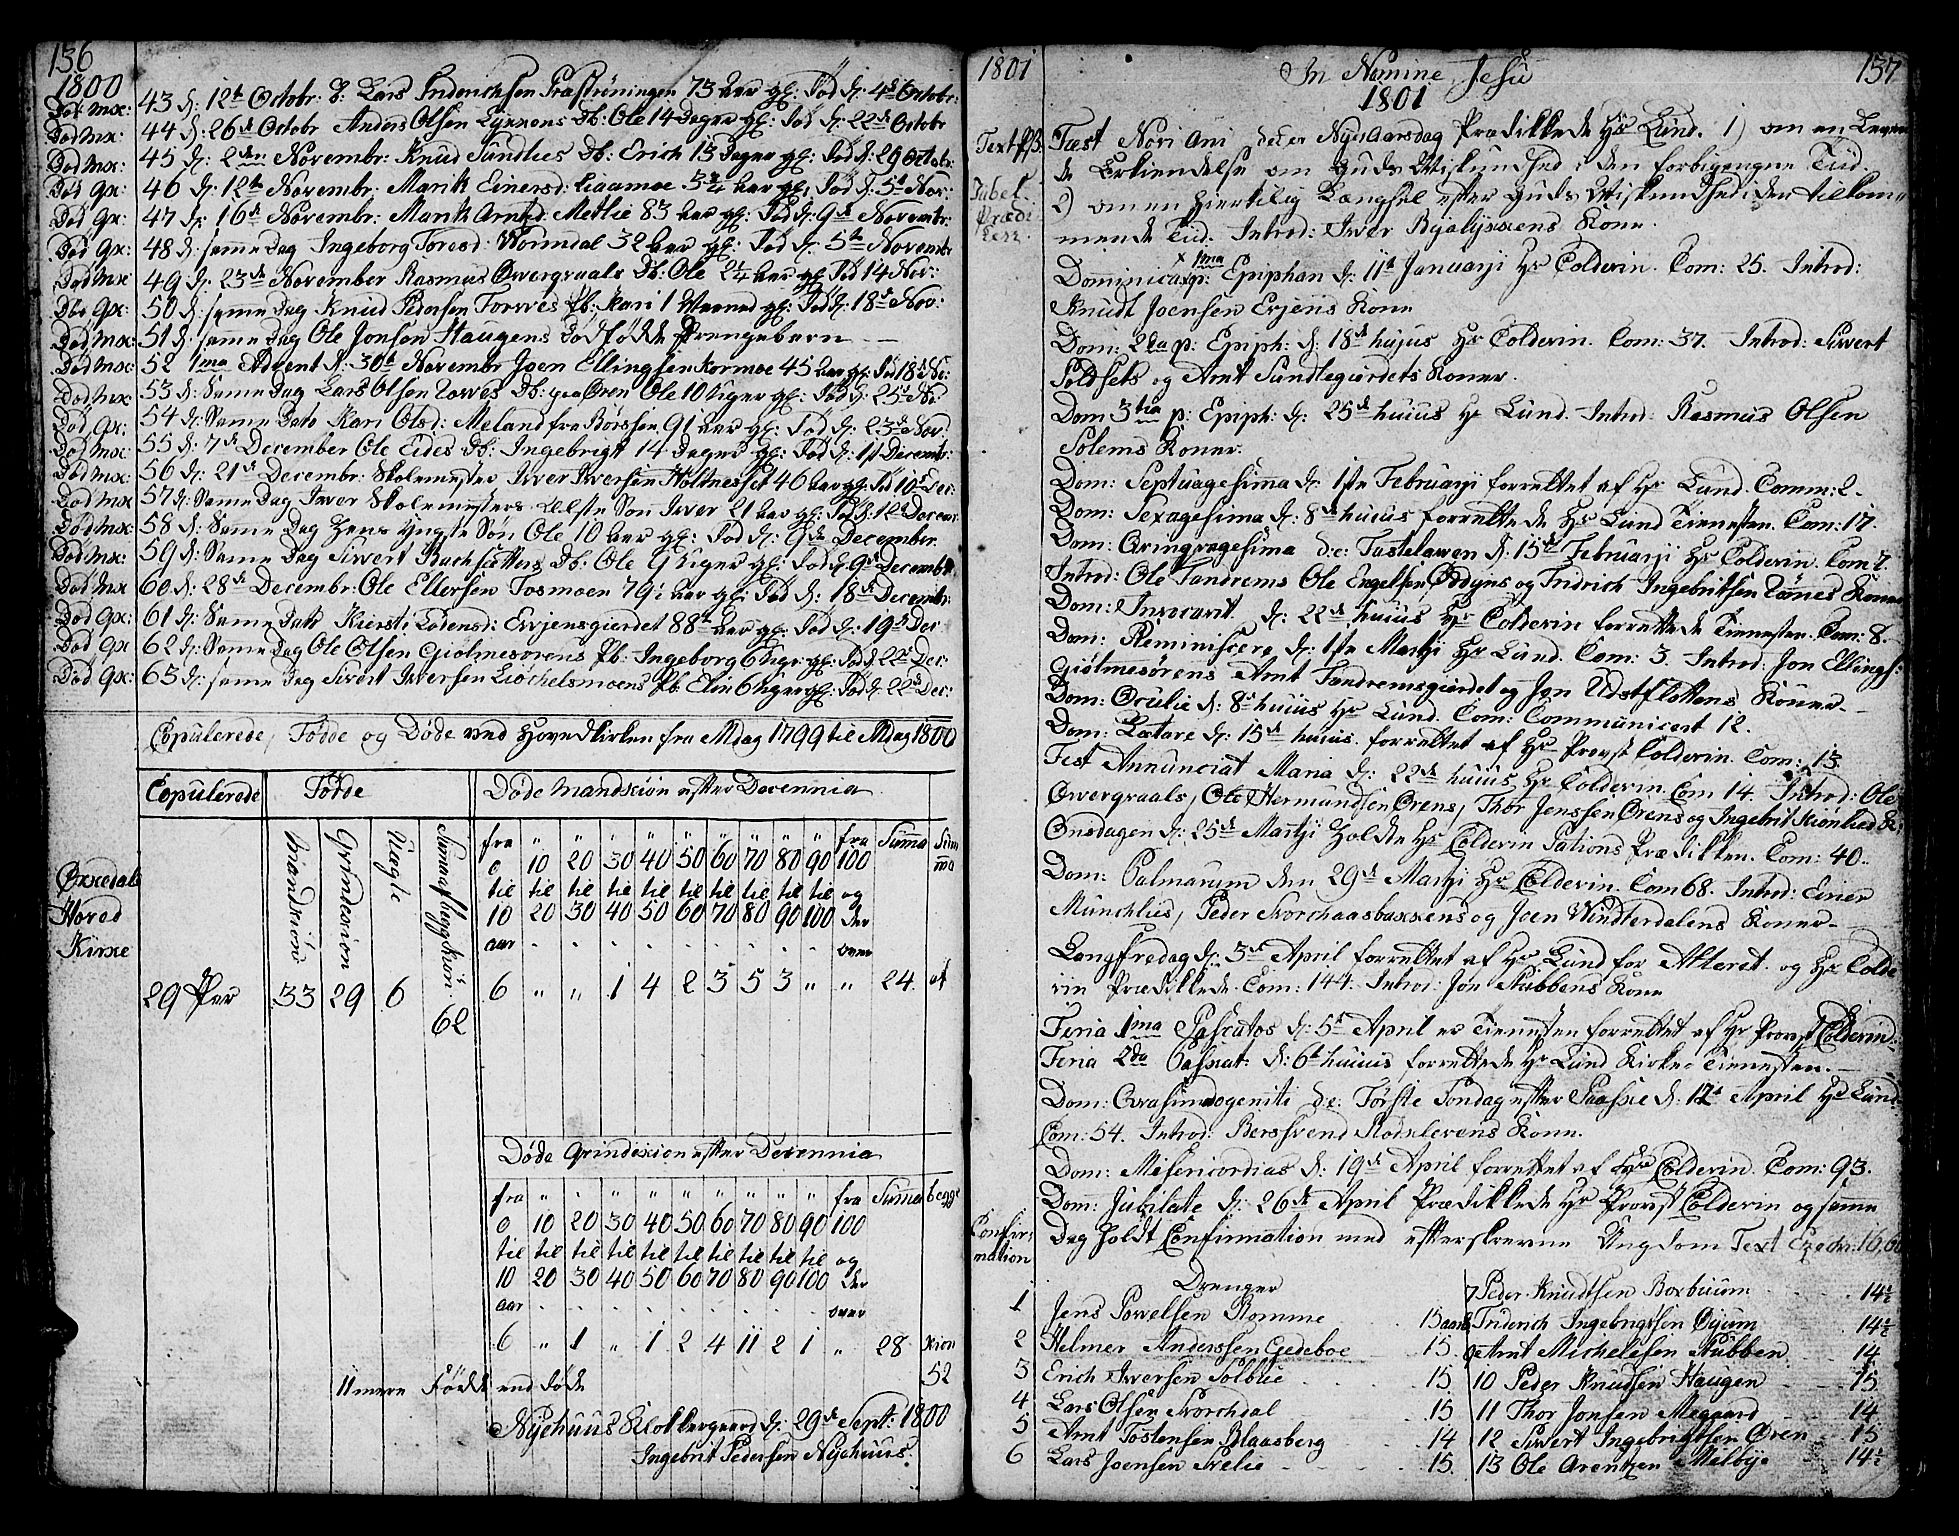 136
1800
Død Mx: 43 d: 12te Octobr: 8: Lars Friderichsen Prastrøningen 73 aar gl: Død d: 4de Octobr:
Død Mx: 44 d: 26de Octobr Anders Olsen Lykkens Db: Ole 14 Dage gl: Død d: 22de Octobr
Død Mx: 45 d: 2den Novembr: Knud Sundlies Db: Erich 13 Dage gl: Død d: 29 Octobr:
Død Qx: 46 d: 12te Novembr: Marit Einersd: Liaamoe 3 3/4 aar gl: Død d: 5te Nov:
Død Qx: 47 d: 16de Novembr: Marit Arntsd: Metlie 83 aar gl: Død d: 9de Novembr:
Død Qx: 48 d: samme Dag Ingeborg Toresd: Wormdal 32 aar gl: Død d: 5te Novembr
Død Mx 49 d: 23de November Rasmus Owergraals Db: Ole 2 1/4 aar gl: Død 14 Nov:
Død Qx: 50 d: samme Dag Knud Pedersen Torwes Pb: Kari 1 Maaned gl: Død d: 18de Nov:
Død Mx: 51 d: samme Dag Ole Jonsen Haugens Dødfødde Drengebarn
Død Mx: 52 1ma Advent d: 30te Novembr Joen Ellingsen Kormoe 45 aar gl: Død 18de No:
Død Mx 53 d: Samme Dag Lars Olsen Torwes Db: paa Øren Ole 10 Uger gl: Død d: 25de No
Død Qx: 54 d: Samme Dato Kari Olsd: Meland fra Børssen 91 aar gl: Død d: 23de Nov:
Død Mx: 55 d: 7de December Ole Eides Db: Ingebrigt 14 Dage gl: Død d: 1st Decembr:
Død Mx 56 d: 21de Decembr: Skolemester Iwer Iwersen Holtnesset 46 aar gl: Død 10de Dec:
Død Mx 57 d: Samme Dag Iwer Skolemesters Ælste Søn Iwer 21 aar gl: Død d: 12te Decem:
Død Mx: 58 d: Samme Dag Hans Yngste Søn Ole 10 aar gl: Død d: 9de December
Død Mx: 59 d: Samme Dag Siwert Bachsættens Db: Ole 9 Uger gl: Død d: 9de Decembr
Død Mx 60 d: 28de Decembr: Ole Ellersen Fosmoen 79 1/2 aar gl: Død d: 18de Decembr:
Død Qx: 61 d: Samme Dato Kiersti Lodensd: Evjensgierdet 88 aar gl: Død d: 19de Dec
Død Qx 62 d: Samme Dag Ole Olsen Giølmesørens Pb: Ingeborg 6 Uger gl: Død d: 22de Dec:
Død Qx: 63 d: samme Dag Siwert Iwersen Liøchelsmoens Pb: Elin 6 Uger gl: Død d: 22de Dec:
Copulerede, Fødde og Døde ved Hovedkirken fra Mdag 1799 til Mdag 1800
Copulerede Fødde Døde Mandkiøn efter Decennia
Mandkiøn Qvindekiøn Uægte Summa af begge kiøn
fra " " " " " " " " " fra Summa Sum
0 10 20 30 40 50 60 70 80 90 100 ma
til til til til til til til til til til og
10 20 30 40 50 60 70 80 90 100 der
aar over
Orkedals
Hoved
Kirke
29 Par 33 29 6 62
6 " " 1 4 2 3 5 3 " " 24 af
Døde Qvindekiøn efter Decennia
fra " " " " " " " " " fra Summa begge
0 10 20 30 40 50 60 70 80 90 100
til til til til til til til til til til og
10 20 30 40 50 60 70 80 90 100 der
aar over
6 " 1 " 1 2 4 11 2 1 " 28 kiøn
11 mere Fødde end døde 52
Nyehuus Klokkergaard d: 29de Sept: 1800
Ingebrit Pedersen Nyehuus.
1801 137
In Nomine Jesu
1801
Text
Jubel
Prædi
Fæst Novi Ani d: er Nyeaarsdag Prædikkede Hr Lund. 1) om en Leven
de Erkiendelse om Guds Miskundhed i den forbigangne Tiid.
2) om en Hiertelig Længsel efter Guds Miskundhed i den tilkom
mende Tiid. Introd: Iwer Byalykkens Kone.
Dominica 1ma p: Epiphan d: 11te Januarji Hr Colderin. Com: 25. Introd:
Knudt Joensen Evjens Kone
Dom: 2da p: Epiph: d: 18de hujus Hr Colderin. Com: 37. Introd: Siwert
Solsets og Arnt Sundlegierdets Koner.
Dom 3tia p: Epiph: d: 25de huius Hr Lund. Introd: Rasmus Olsen
Solems Koner.
Dom: Septuagesima d: 1ste Februarji forrettet af Hr Lund. Comm: 2.
Dom: Sexagesima d: 8de huius forrettede Hr Lund Tienesten. Com: 17.
Dom: Qvinqvagesima d:e: Fastelawen d: 15de Februarji Hr Colderin. Com 7.
Introd: Ole Fandrems Ole Engelsen Oddyns og Fridrich Ingebritsen Rømes Koner
Dom: Invocavit d: 22de huius Hr Colderin forrettede Tienesten. Com: 8.
Dom: Reminiscere d: 1ste Martji Hr Lund. Com: 3. Introd: Jon Ellings:
Giølmesørens Arnt Fandremsgierdet og Jon Udstflottens Koner
Dom: Oculie d: 8de huius Hr Lund. Com: Communicert 12.
Dom: Lætare d: 15de huius forrettet af Hr Provst Colderin. Com: 13
Fest Annunciat Maria d: 22de huius Hr Colderin. Com 14. Introd: Ole
Owergraals, Ole Hermundsen Ørens, Thor Jenssen Ørens og Ingebrit Kionlied K:
Onsdagen d: 25de Martji Holdte Hr Colderin Sations Prædikken. Com: 40.
Dom: Palmarum den 29de Martji Hr Colderin. Com 68. Introd: Einer
Munchlies, Peder Skorchaasbakkens og Joen Windterdalens Koner
Langfredag d: 3de April forrettet af Hr Lund for Alteret og Hr Colde
rin Prædikkede. Com: 144. Introd: Jon Stubbens Kone
Feria 1ma Pascatos d: 5te April er Tienesten forrettet af Hr Provst Colderin.
Feria 2da Passcat: d: 6te huius forrettede Hr Lund Kirke Tienesten.
Dom: Qvasimodogeniti d:e: Første Søndag efter Paaske d: 12te April Hr Lund
Com: 54. Introd: Berssvend Rodslevens Kone.
Dom: Misericordias d: 19de April forrettet af Hr Colderin. Com: 93.
Dom: Jubilate d: 26de April Prædikkede Hr Provst Colderin og samme
Confir
mation
Dag holdt Confirmation med efterskrevne Ungdom Text Ezech: 16,60
Drenge
1 Jens Powelsen Komme 15 aar
2 Helmer Anderssen Gedeboe 15.
3 Erich Iwersen Solblie 15.
4 Lars Olsen Skorchdal 15
5 Arnt Tostensen Blaasberg 14
6 Lars Joensen Svelie 15.
7 Peder Knudtsen Boxbuum 14 1/2
8 Friderich Ingebrigtsen Øyum 14 1/2
9 Arnt Michelsen Stubben 14
10 Peder Knudsen Haugen 15
11 Thor Jonsen Megaard 14
12 Siwert Ingebrigtsen Øren 15
13 Ole Arentzen Melbye 14 1/2